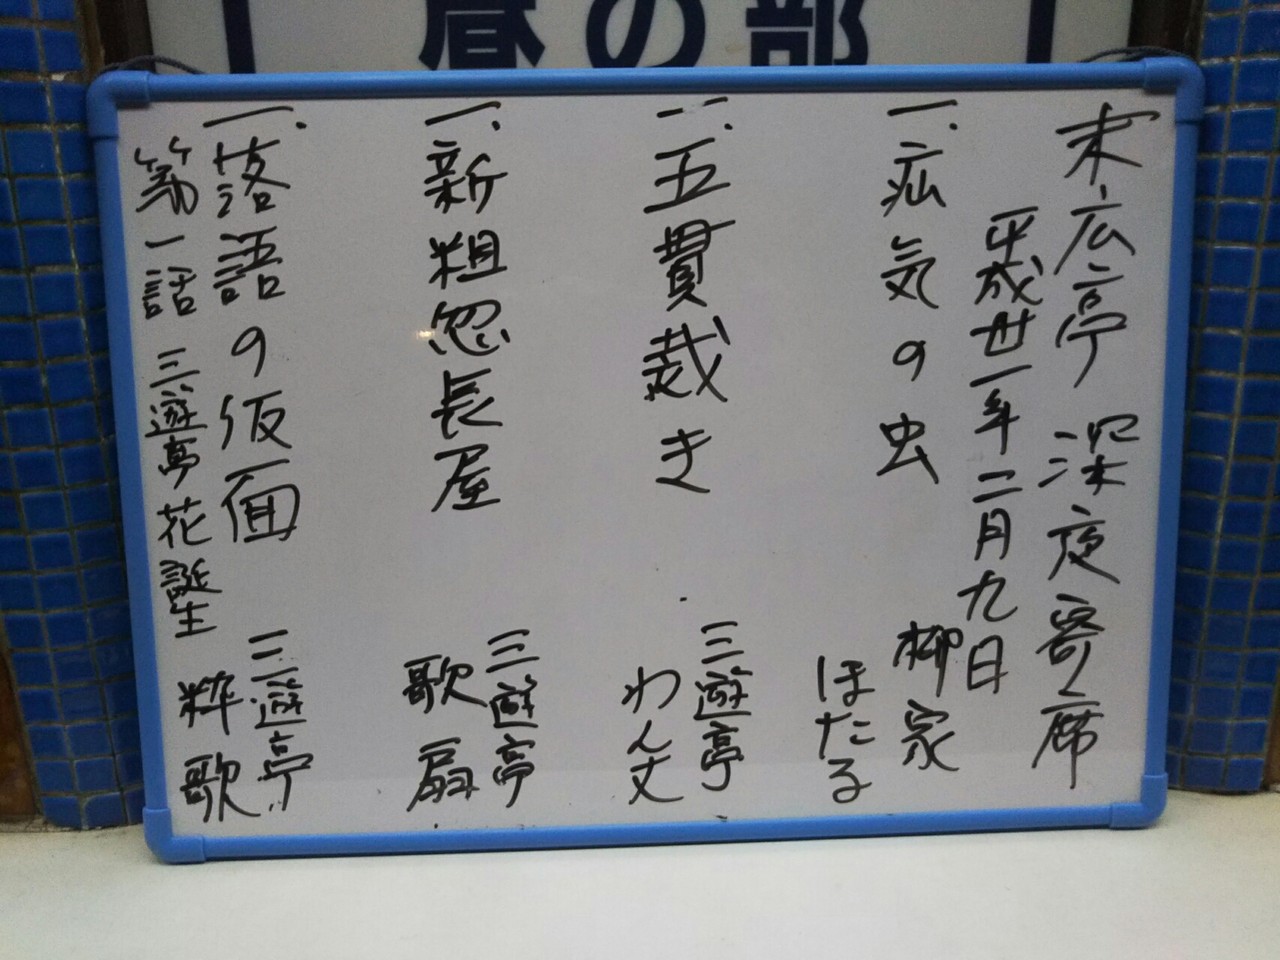 昼の部
末広亭 深夜寄席
平成卅一年二月九日
一、疝気の虫 柳家
ほたる
一、五貫裁き 三遊亭
わん丈
一、新粗忽長屋 三遊亭
歌扇
一、落語の仮面 三遊亭
第一話 三遊亭花誕生 粋歌